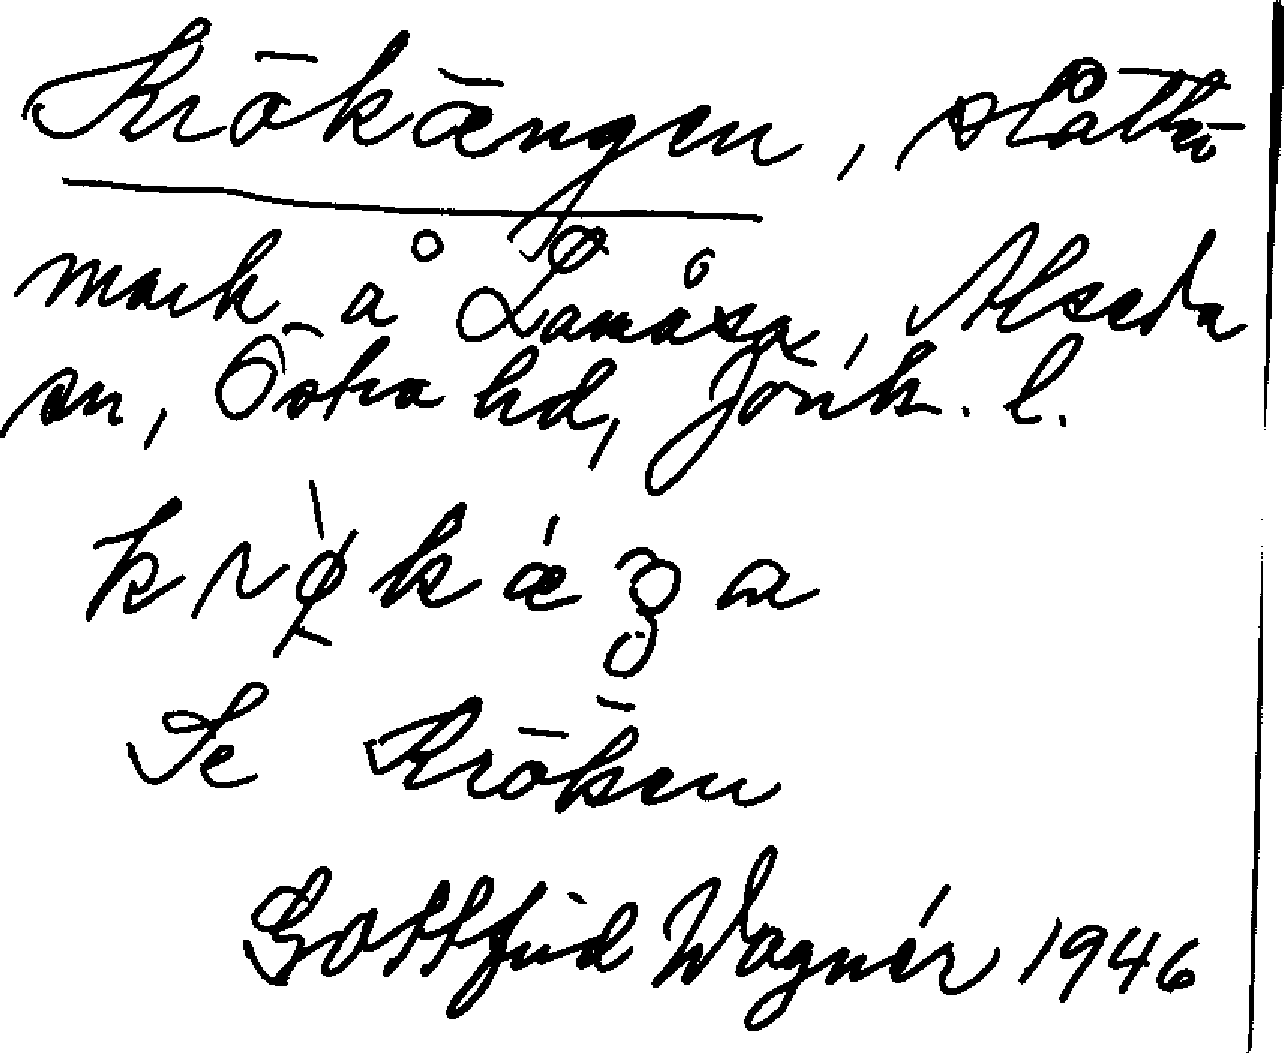 Krökängen, slåtter-
mark å Lamåsa, Alseda
sn, Östra hd, Jönk. l.
Se Kröken
Gottfrid Wagnér 1946